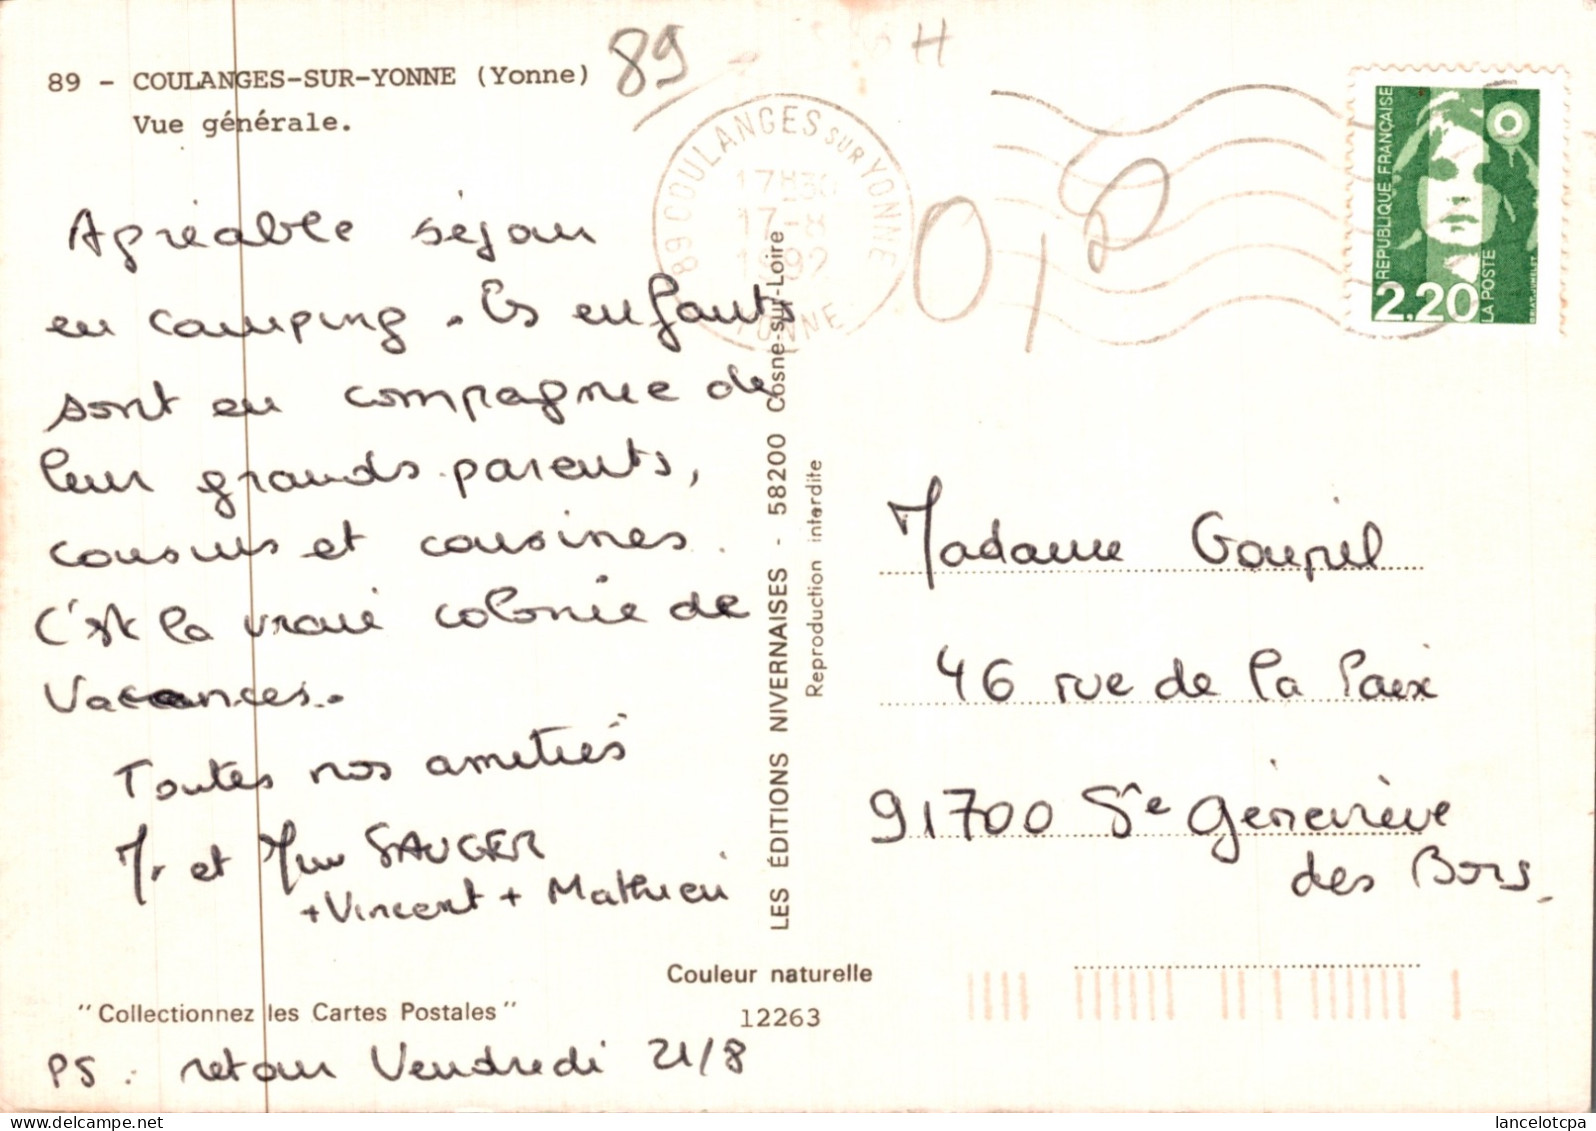 89 - COULANGES-SUR-YONNE (Yonne)
Vue générale.
89
H
89 COULANGES SUR YONNE
17H30
17-8
1992
YONNE
0,50
RÉPUBLIQUE FRANÇAISE
2.20
LA POSTE
Agréable séjour
en camping. Les enfants
sont en compagnie de
leur grands-parents,
cousins et cousines.
C'est la vraie colonie de
Vacances.
Toutes nos amitiés
Mr et Mme SAUGER
+ Vincent + Mathieu
LES ÉDITIONS NIVERNAISES - 58200 Cosne-sur-Loire
Reproduction interdite
Madame Goupil
46 rue de la Paix
91700 Ste Geneviève
des Bois.
Couleur naturelle
12263
"Collectionnez les Cartes Postales"
PS : retour Vendredi 21/8
lancelotcpa